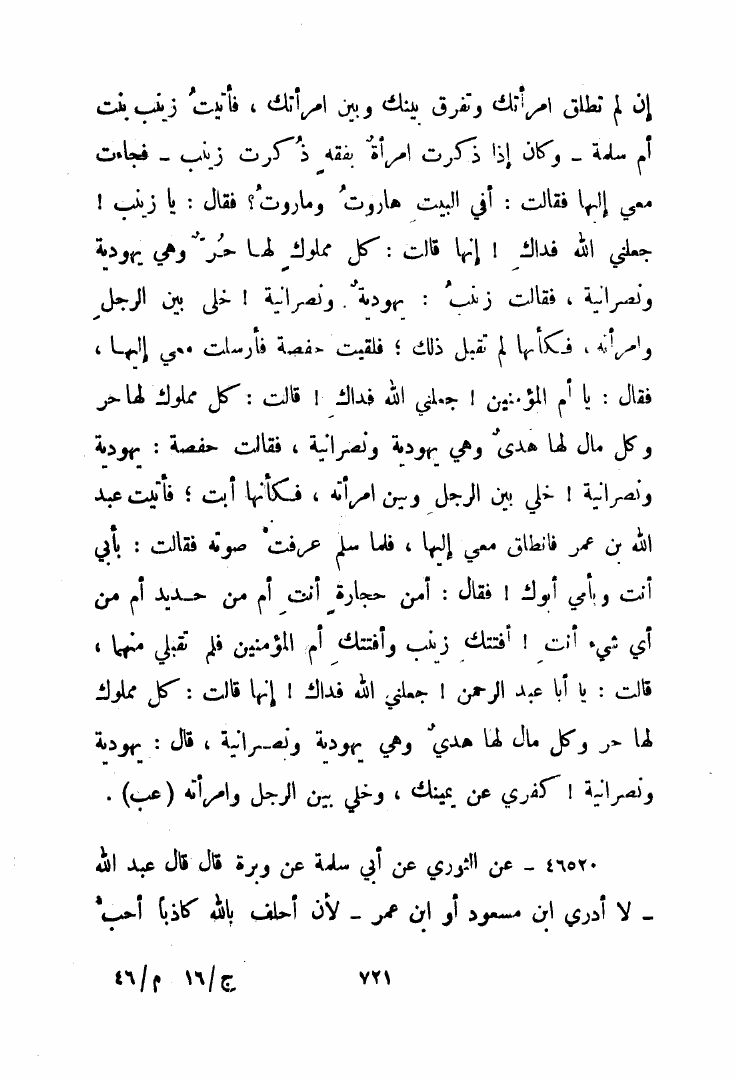 إن لم تطلق امرأتك وتفرق بينك وبين امرأتك ، فأتيتُ زينب بنت
أم سلمة ـ وكان إذا ذكرت امرأةٌ بفقهٍ ذُكرت زينب ـ فجاءت
معي إليها فقالت : أفي البيتِ هاروتُ وماروتُ؟ فقال : يا زينب !
جعلني الله فداكِ ! إنها قالت : كل مملوكٍ لها حُرٌ وهي يهودية
ونصرانية ، فقالت زينبُ : يهوديةٌ ونصرانية ! خلى بين الرجلِ
وامرأته ، فكأنها لم تقبل ذلك ؛ فلقيت حفصة فأرسلت معي إليها ،
فقال : يا أم المؤمنين ! جعلني الله فداكِ ! قالت : كل مملوك لها حر
وكل مال لها هدىٌ وهي يهودية ونصرانية ، فقالت حفصة : يهودية
ونصرانية ! خلي بين الرجلِ وبين امرأته ، فكأنها أبت ؛ فأتيت عبد
الله بن عمر فانطلق معي إليها ، فلما سلم عرفتْ صوته فقالت : بأبي
أنت وبأمي أبوك ! فقال : أمن حجارةٍ أنتِ أم من حديد أم من
أي شيء أنتِ ! أفتتكِ زينب وأفتتكِ أم المؤمنين فلم تقبلي منهما ،
قالت : يا أبا عبد الرحمن ! جعلني الله فداك ! إنها قالت : كل مملوك
لها حر وكل مال لها هديٌ وهي يهودية ونصرانية ، قال : يهودية
ونصرانية ! كفري عن يمينك ، وخلي بين الرجل وامرأته (عب) .
٤٦٥٢٠ ـ عن الثوري عن أبي سلمة عن وبرة قال قال عبد الله
ـ لا أدري ابن مسعود أو ابن عمر ـ لأن أحلف بالله كاذباً أحبُّ
٧٢١ ج/١٦ م/٤٦